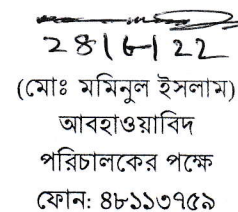 ২৪|৮|২২
(মোঃ মমিনুল ইসলাম)
আবহাওয়াবিদ
পরিচালকের পক্ষে
ফোন: ৪৮১১৩৭৫৯